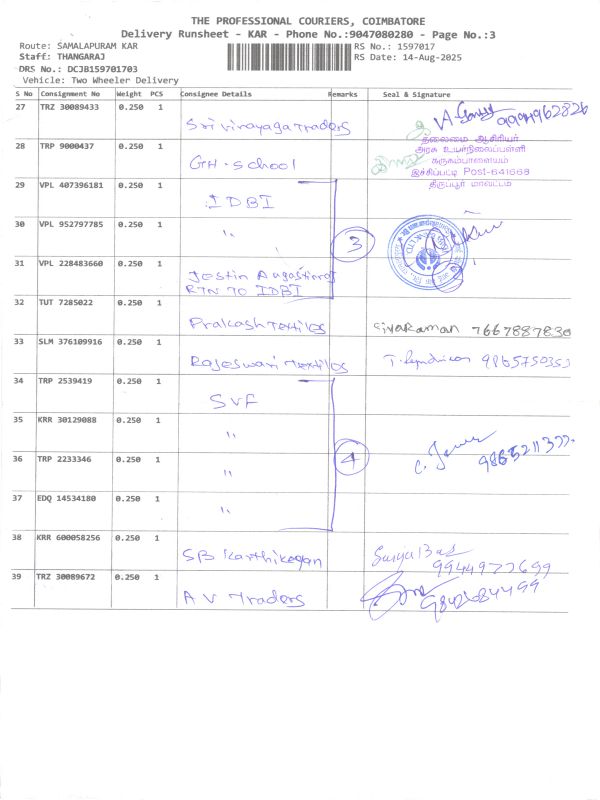 THE PROFESSIONAL COURIERS, COIMBATORE
Delivery Runsheet - KAR - Phone No.:9047080280 - Page No.:3
Route: SAMALAPURAM KAR RS No.: 1597017
Staff: THANGARAJ RS Date: 14-Aug-2025
DRS No.: DCJB159701703
Vehicle: Two Wheeler Delivery
S No Consignment No Weight PCS Consignee Details Remarks Seal & Signature
27 TRZ 30089433 0.250 1
Sri Vinayaga Traders
28 TRP 9000437 0.250 1
GH-School
தலைமை ஆசிரியர்
அரசு உயர்நிலைப்பள்ளி
கருகம்பாளையம்
இச்சிப்பட்டி Post-641668
திருப்பூர் மாவட்டம்
29 VPL 407396181 0.250 1
IDBI
30 VPL 952797785 0.250 1
" 3
31 VPL 228483660 0.250 1
Jestin Augastiaraj
RTN TO IDBI
32 TUT 7285022 0.250 1
Prakash Textiles Sivaraman 7667887830
33 SLM 376109916 0.250 1
Rajeswari Textiles
34 TRP 2539419 0.250 1
SVF
35 KRR 30129088 0.250 1
"
36 TRP 2233346 0.250 1
" 4
37 EDQ 14534180 0.250 1
"
38 KRR 600058256 0.250 1
SB Karthikeyan
9944977699
39 TRZ 30089672 0.250 1
A V Traders